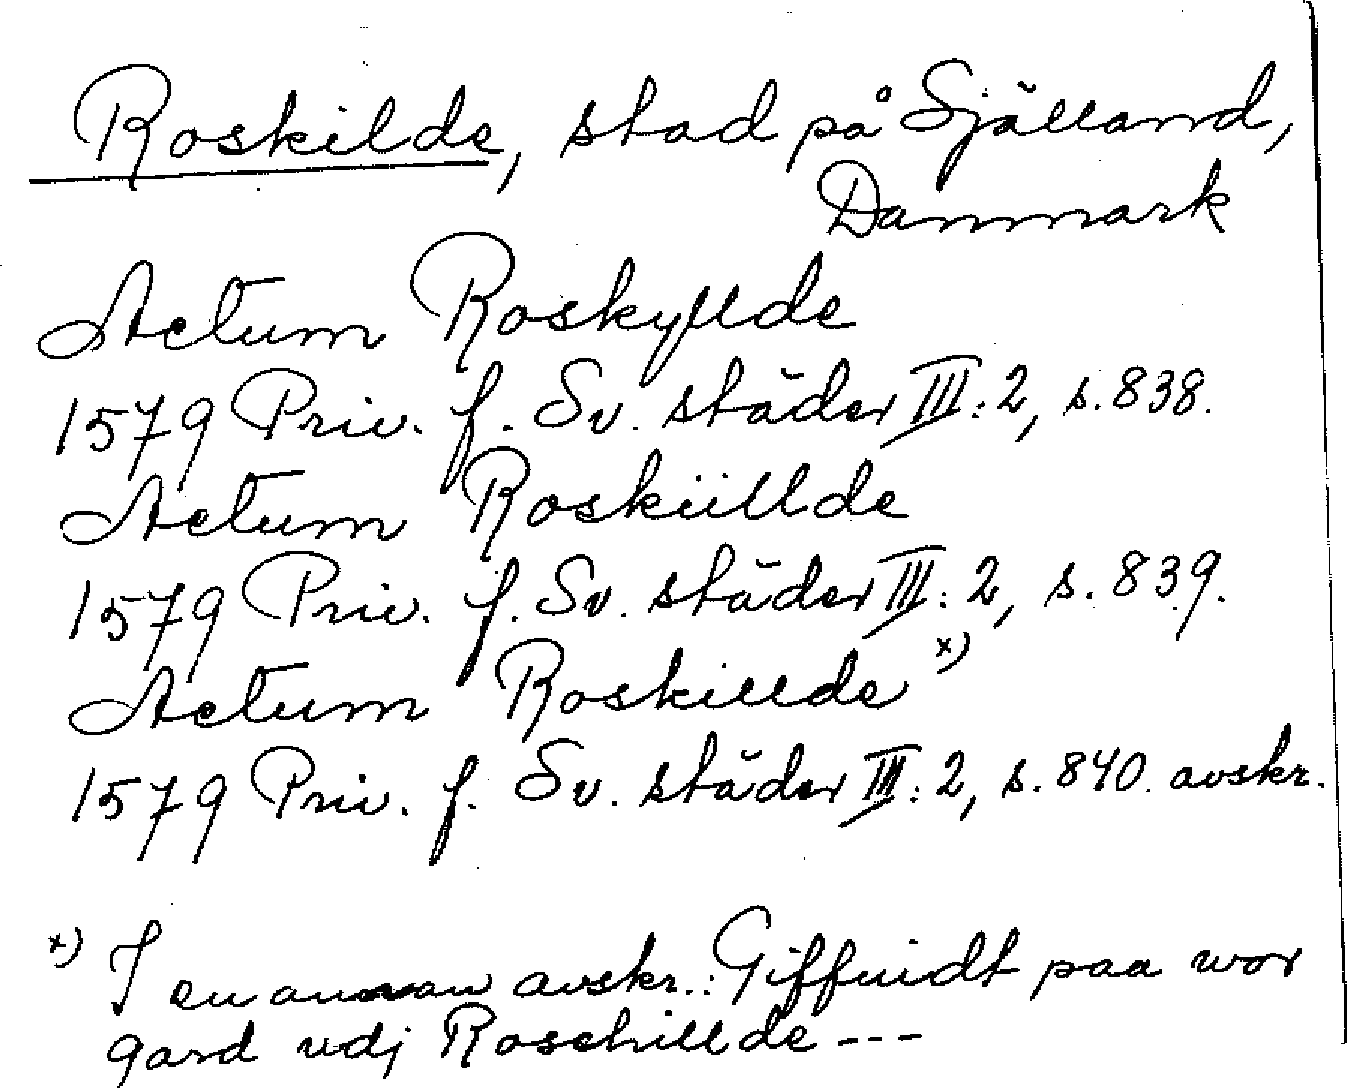 Roskilde, stad på Själland,
Danmark
Actum Roskyllde
1579 Priv. f. Sv. städer III:2, s. 838.
Actum Roskiillde
1579 Priv. f. Sv. städer III:2, s. 839.
Actum Roskillde x)
1579 Priv. f. Sv. städer III:2, s. 840. avskr.
x) I en annan avskr.: Giffuidt paa wor
gard vdj Roschillde ---